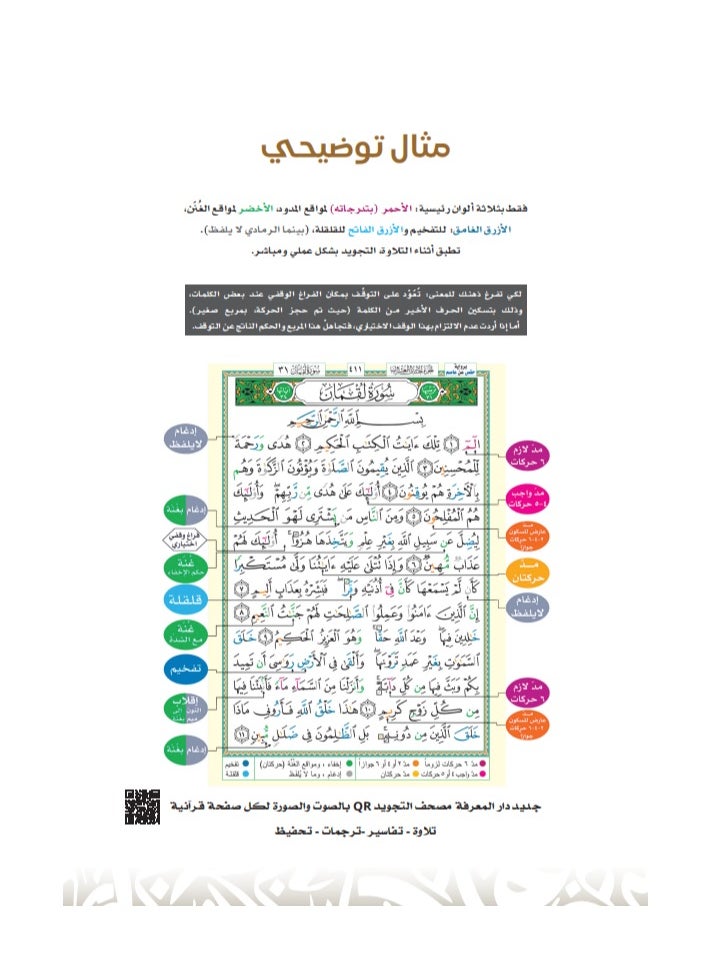 مثال توضيحي
فقط بثلاثة ألوان رئيسية: الأحمر (بتدرجاته) لمواقع المدود، الأخضر لمواقع الغُنَن،
الأزرق الغامق: للتفخيم والأزرق الفاتح للقلقلة، (بينما الرمادي لا يلفظ).
تطبق أثناء التلاوة، التجويد بشكل عملي ومباشر.
لكي تفرغ ذهنك للمعنى: تُعَوَّد على التوقُّف بمكان الفراغ الوقفي عند بعض الكلمات،
وذلك بتسكين الحرف الأخير من الكلمة (حيث تم حجز الحركة، بمربع صغير).
أما إذا أردت عدم الالتزام بهذا الوقف الاختياري، فتجاهلْ هذا المربع والحكم الناتج عن التوقف.
سُورَةُ لُقْمَانَ ٣١
٤١١
برواية
حفص عن عاصم
سُورَةُ لُقْمَانَ
بِسْمِ اللَّهِ الرَّحْمَٰنِ الرَّحِيمِ
الٓمٓ ١ تِلْكَ ءَايَٰتُ الْكِتَٰبِ الْحَكِيمِ ٢ هُدًى وَرَحْمَةً
لِّلْمُحْسِنِينَ ٣ الَّذِينَ يُقِيمُونَ الصَّلَوٰةَ وَيُؤْتُونَ الزَّكَوٰةَ وَهُم
بِالْءَاخِرَةِ هُمْ يُوقِنُونَ ٤ أُوْلَٰٓئِكَ عَلَىٰ هُدًى مِّن رَّبِّهِمْ وَأُوْلَٰٓئِكَ
هُمُ الْمُفْلِحُونَ ٥ وَمِنَ النَّاسِ مَن يَشْتَرِى لَهْوَ الْحَدِيثِ
لِيُضِلَّ عَن سَبِيلِ اللَّهِ بِغَيْرِ عِلْمٍ وَيَتَّخِذَهَا هُزُوًا أُوْلَٰٓئِكَ لَهُمْ
عَذَابٌ مُّهِينٌ ٦ وَإِذَا تُتْلَىٰ عَلَيْهِ ءَايَٰتُنَا وَلَّىٰ مُسْتَكْبِرًا
كَأَن لَّمْ يَسْمَعْهَا كَأَنَّ فِىٓ أُذُنَيْهِ وَقْرًا فَبَشِّرْهُ بِعَذَابٍ أَلِيمٍ ٧
إِنَّ الَّذِينَ ءَامَنُوا وَعَمِلُوا الصَّٰلِحَٰتِ لَهُمْ جَنَّٰتُ النَّعِيمِ ٨
خَٰلِدِينَ فِيهَا وَعْدَ اللَّهِ حَقًّا وَهُوَ الْعَزِيزُ الْحَكِيمُ ٩ خَلَقَ
السَّمَٰوَٰتِ بِغَيْرِ عَمَدٍ تَرَوْنَهَا وَأَلْقَىٰ فِى الْأَرْضِ رَوَٰسِىَ أَن تَمِيدَ
بِكُمْ وَبَثَّ فِيهَا مِن كُلِّ دَآبَّةٍ وَأَنزَلْنَا مِنَ السَّمَآءِ مَآءً فَأَنۢبَتْنَا فِيهَا
مِن كُلِّ زَوْجٍ كَرِيمٍ ١٠ هَٰذَا خَلْقُ اللَّهِ فَأَرُونِى مَاذَا
خَلَقَ الَّذِينَ مِن دُونِهِ بَلِ الظَّٰلِمُونَ فِى ضَلَٰلٍ مُّبِينٍ ١١
مدّ لازم
٦ حركات
مد واجب
٤-٥ حركات
مد
عارض للسكون
٢-٤-٦ حركات
جوازاً
مد
حركتان
إدغام
لايلفظ
مدّ لازم
٦ حركات
مد
عارض للسكون
٢-٤-٦ حركات
جوازاً
إدغام
لايلفظ
إدغام بغنة
فراغ وقفي
اختياري
غُنة
حكم الإخفاء
قلقلة
غُنة
مع الشدة
تفخيم
إقلاب
النون إلى
ميم بغنة
إدغام بغنة
مدّ ٦ حركات لزوماً مدّ ٢ أو ٤ أو ٦ جوازاً إخفاء، ومواقع الغُنَّة (حركتان) تفخيم
مدّ واجب ٤ أو ٥ حركات مدّ حركتان إدغام، وما لا يُلفَظ قلقلة
جديد دار المعرفة مصحف التجويد QR بالصوت والصورة لكل صفحة قرآنية
تلاوة - تفاسير -ترجمات - تحفيظ